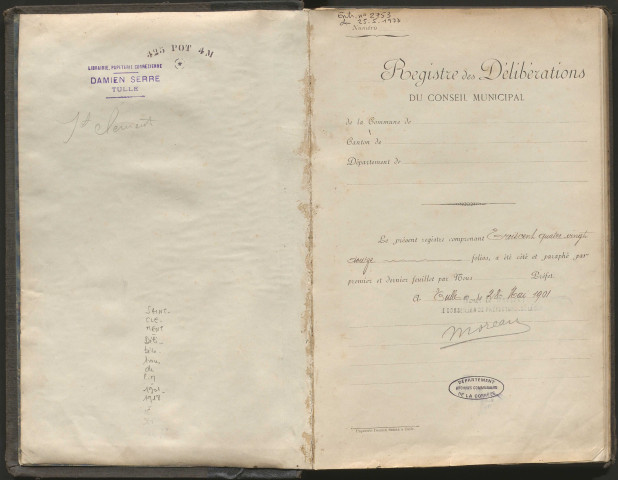 425 POT 4M
LIBRAIRIE, PAPETERIE CORRÉZIENNE
DAMIEN SERRE
TULLE
St Clément
SAINT-
CLÉ-
MENT
Déli-
de
1901-
Entr. n° 2753
25.5.1933
Numéro
Registre des Délibérations
DU CONSEIL MUNICIPAL
de la Commune de
Canton de
Département de
Le présent registre comprenant Trois cent quatre vingt
feuillets, a été coté et paraphé par
premier et dernier feuillet par Nous Préfet.
A Tulle, le Mai 1901
Moreau
DÉPARTEMENT
DE LA CORRÈZE